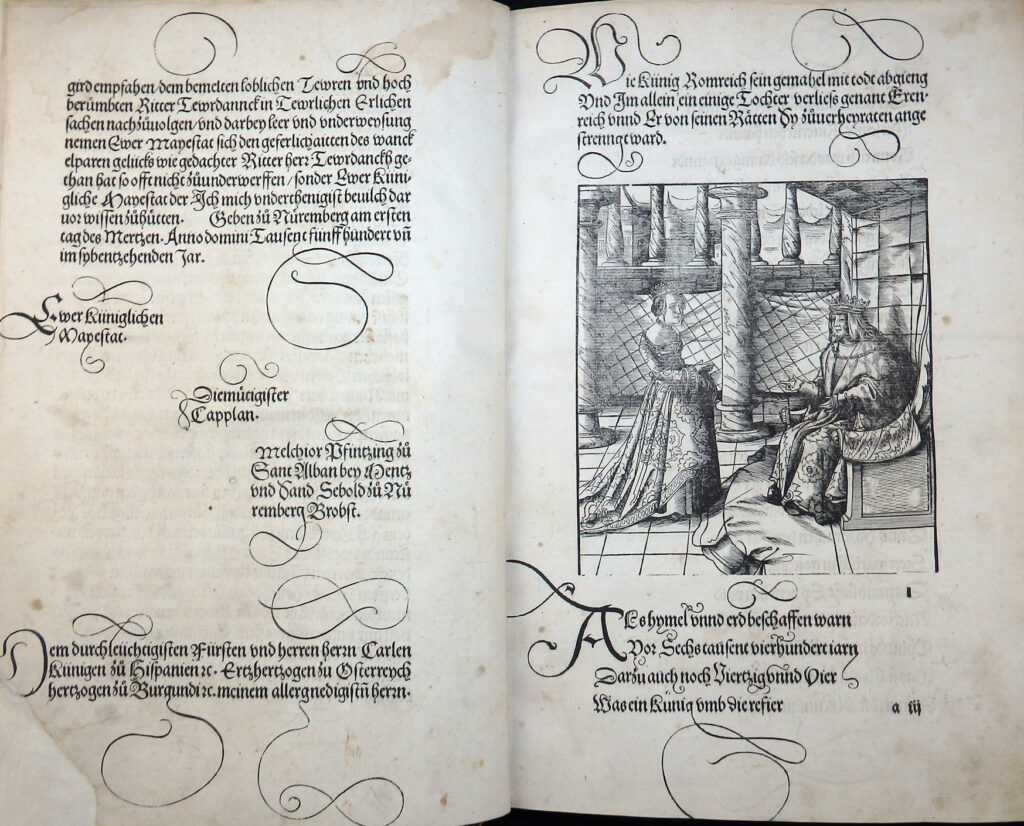 gird empfahen/dem bemelten loblichen Tewren vnd hoch
berümbten Ritter Tewrdannck in Tewrlichen Erlichen
sachen nachzůuolgen/vnd darbey leer vnd vnderweysung
nemen Ewer Mayestat sich den geferlichaitten des wanck
elparen gelücks wie gedachter Ritter herr Tewrdanckh ge-
than hat so offt nicht zůunderwerffen/sonder Ewer Küni-
gliche Mayestat der Ich mich vnderthenigist beuilch dar
uor wissen zůhütten. Geben zů Nüremberg am ersten
tag des Mertzen. Anno domini Tausent funff hundert vñ
im sybentzehenden Jar.
Ewer Küniglichen
Mayestat.
Diemütigister
Capplan.
Melchior Pfintzing zů
Sant Alban bey Mentz
vnd Sand Sebold zů Nü
remberg Brobst.
Dem durchleüchtigisten Fürsten vnd herren herrn Carlen
Künigen zů Hispanien ⁊c. Ertzhertzogen zů Osterreych
hertzogen zů Burgundi ⁊c. meinem allergnedigistñ herrn.
Wie Künig Romreich sein gemahel mit todt abgieng
Vnd Im allein ein einige Tochter verließ genant Eren-
reich vnnd Er von seinen Rätten Sy zůuerheyraten ange
strenngt ward.
1
Als hymel vnnd erd beschaffen warn
Vor Sechstausent vierhundert iarn
Darzů auch noch Viertzig vnnd Vier
Was ein Künig vmb die refier
a iij